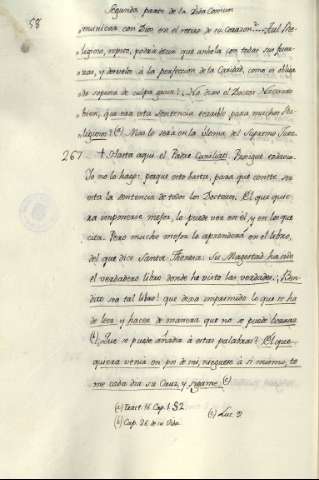 58
Segunda parte de la Vida Comun
municar con Dios en el retiro de su corazon?... Tal Re-
ligioso, repito, podrà decir que anhela con todas sus fuer-
zas, y desvelo à la perfeccion de la Caridad, como es obliga-
do so pena de culpa grave? No dixo el Doctor Navarro
bien, que era esta sentencia terrible para muchos Re-
ligiosos? (a) Mas lo serà en la misma del Supremo Juez.
267 Hasta aqui el Padre Cuniliati. Aunque todavia
Yo no lo hago; porque esto basta, para que conste ser
esta la sentencia de todos los Doctores. El que quie-
ra imponerse mejor, lo puede ver en èl, y en los que
cita. Pero mucho mejor lo aprenderà en el libro,
del que dice Santa Theresa: Su Magestad ha sido
el verdadero libro donde he visto las verdades. ¡Ben-
dito sea tal libro! que dexa imprimido lo que se ha
de leer, y hacer de manera que no se puede
(b) Que se puede añadir à estas palabras? El que
quiera venir en pos de mi, nieguese à si mismo, to-
me cada dia su Cruz, y sigame. (c)
(a) Tract. 16. Cap. 1. § 2
(b) Cap. 26. de su Vida
(c) Luc. 9